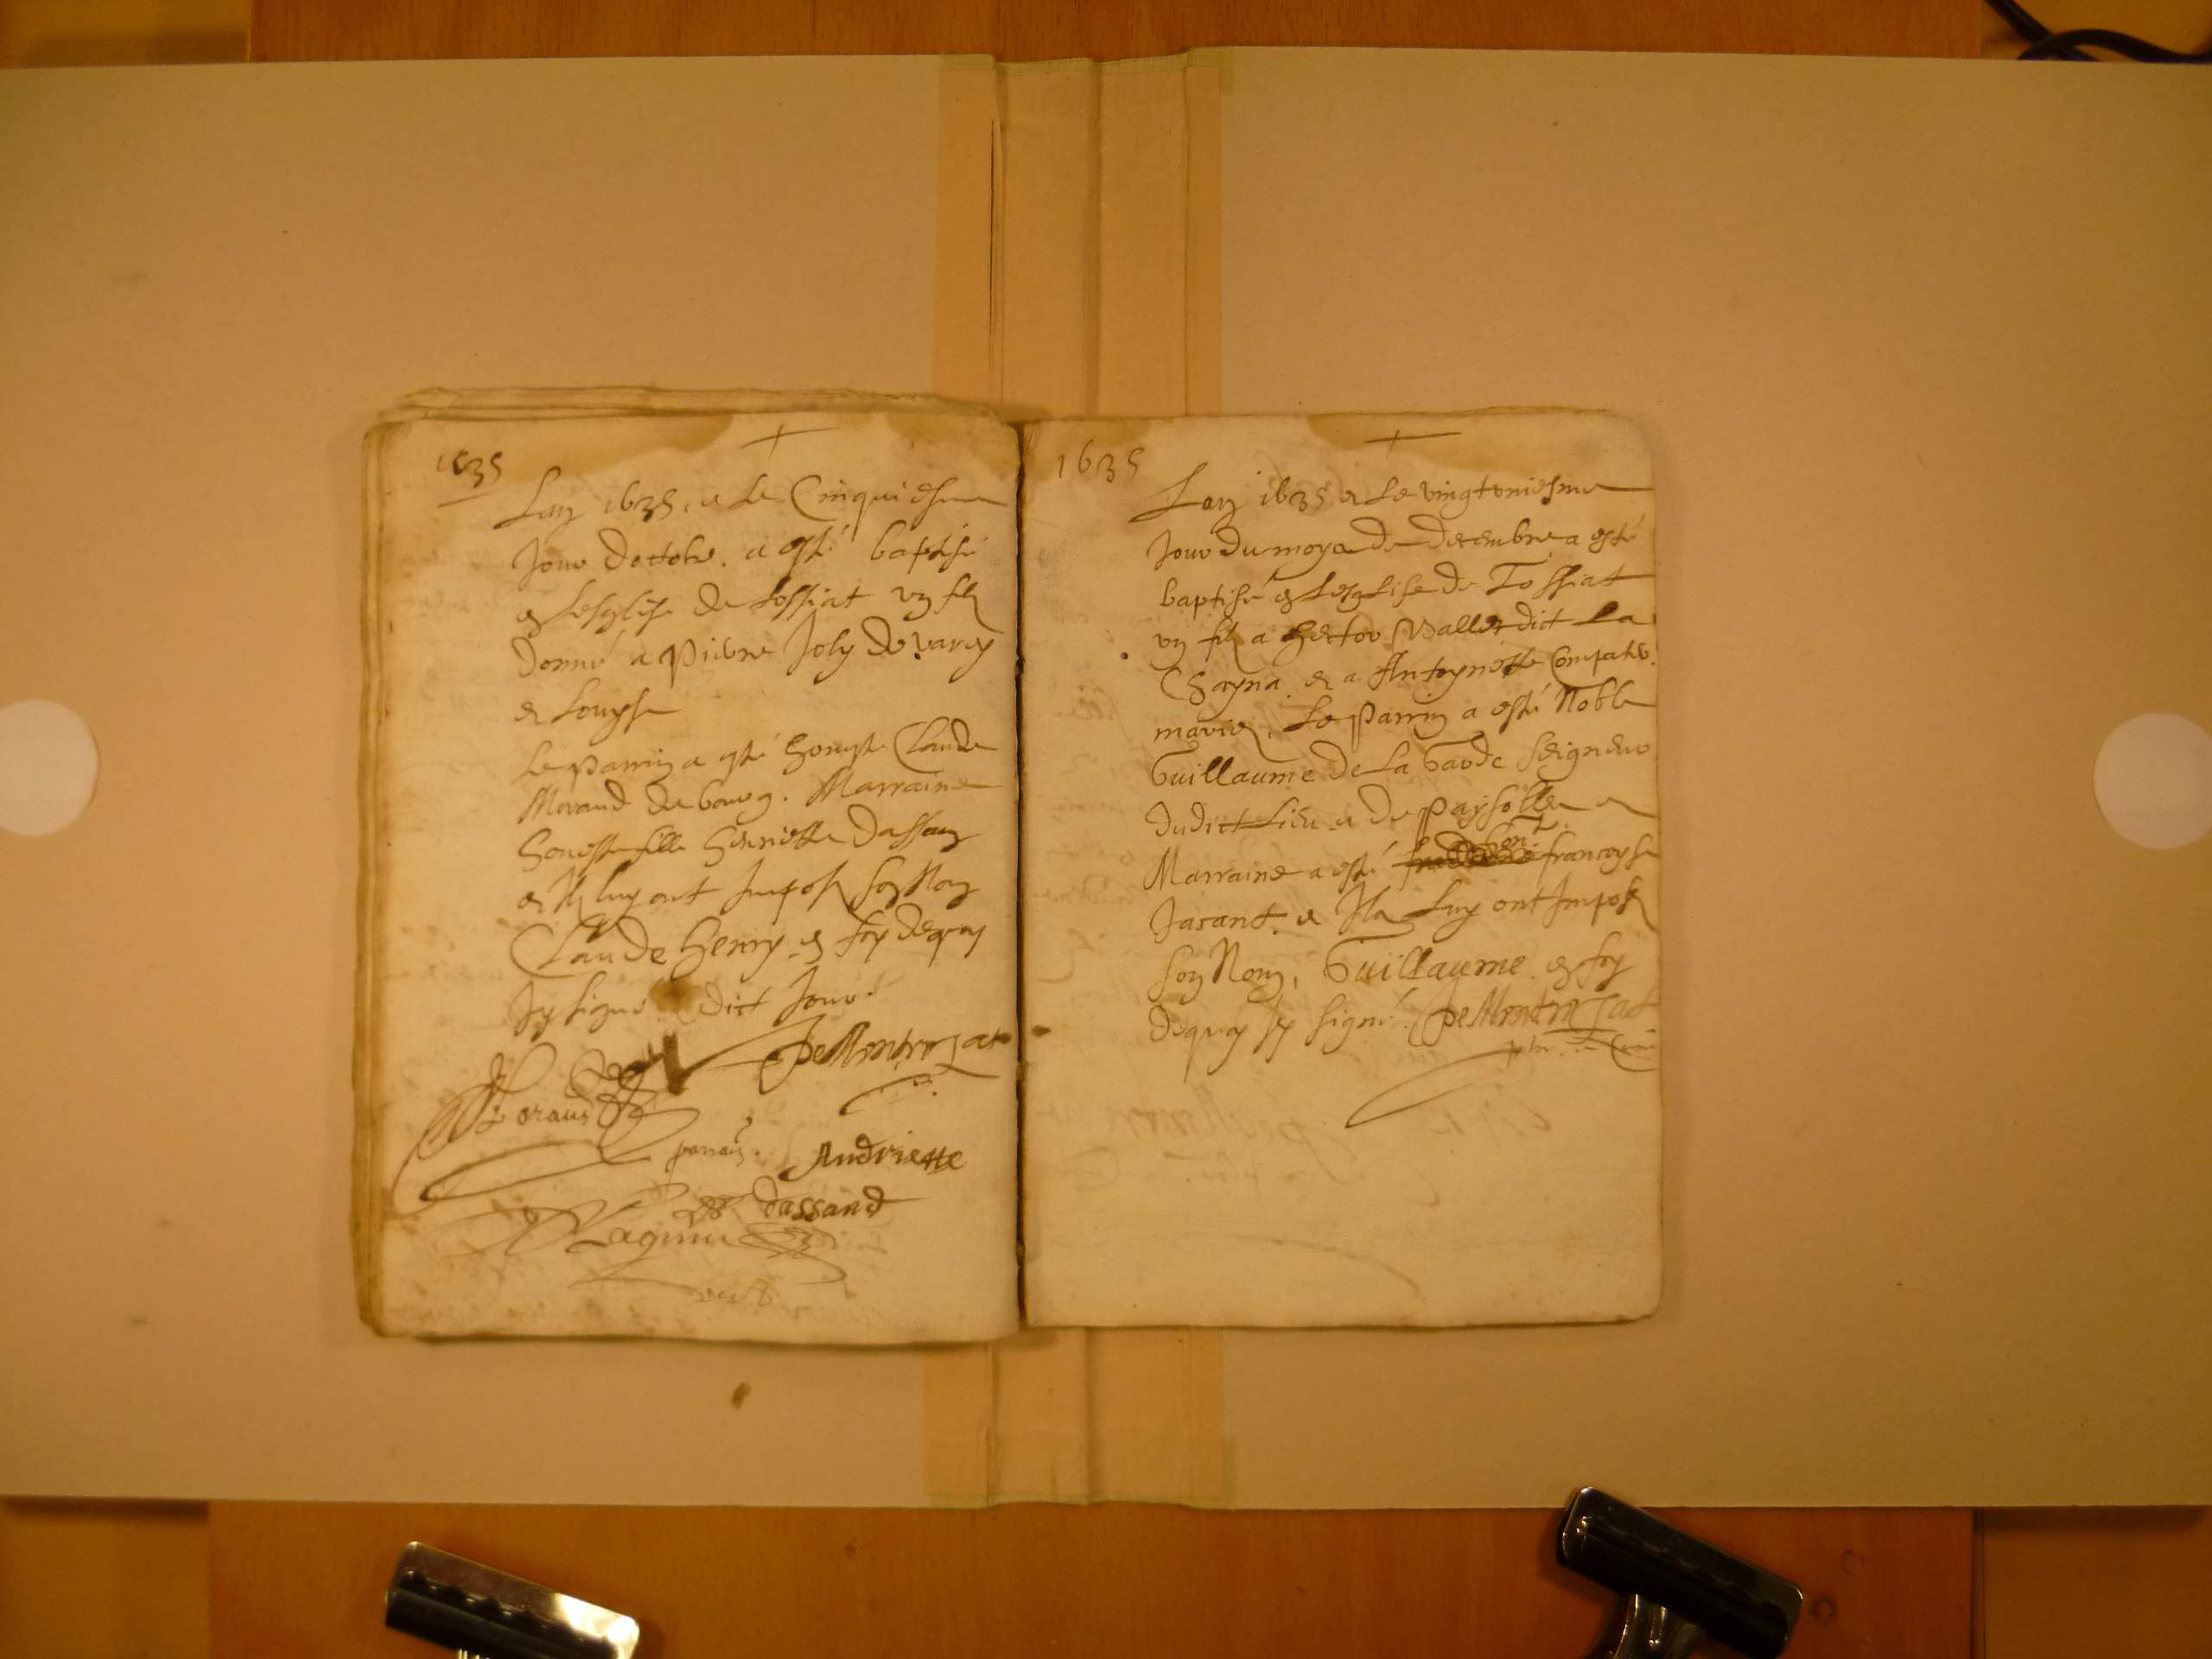 1635
Lan 1635. et le Cinquiesme
Jour doctobre. a esté baptisé
en lesglise de tossiat un filz
donné a Pierre Joly de varey
et Louyse
Le Parrin a esté honeste Claude
Morand de bourg. Marraine
honeste fille henriette dassan
et Ilz luy ont Imposé son Nom
Claude henry. en foy dequoy
Jy signé dict Jour.
DeMontrozat
Morand
parrain.
Andriette
dassand
1635
Lan 1635 et Le vingtuniesme
Jour du moys de decembre a esté
baptisé en Lesglise de Tossiat
un filz a hector Vallet dict La
Chayna. et a Anthoynette Compatro.
mariez. Le Parrin a esté Noble
Guillaume De La Garde Seigneur
dudict Lieu et de Paysolle et
Marraine a esté francoyse
Jacant. et Ilz Luy ont Imposé
son Nom, Guillaume. en foy
dequoy Jy signé. DeMontrozat
ptre Curé